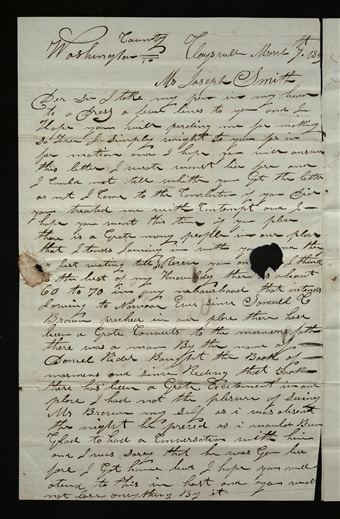 Washington County Claysvill
Mr Joseph Smith
Der Sir I take my pen in my hand
to a Dress a few lines to you and I
Hope you will parding me for making
So Free I Simpley wright to you for in
for mation and I hope you will answer
this letter I wrote wonst be fore and
I Could not tell wheather you Got the letter
or not I Come to the Conclution if you Did
you treated me with Contempt and I
hope you wont this time if you plese
there is a Grate meny people in our plase
that intends Joining in with you and the
last meeting
the best of my Knowledge ther is about
60 to 70 live in that intends
Joining to Novoo Ever Since Samuel C
Brown preched in our plase there has
been a Grate Converts to the mormons
there was a man By the name of
Daniel Rider Baught the Book of
mormons and since Reeding that Book
there has been a Grate Exitement in our
plase I had not the plesure of Seeing
Mr Brown my self as i was absent
the night he preched as i would Been
Glad to had a Conversation with him
and I was Sorey that he was Gon be
fore I Got home but I hope you will
atend to this in hast and you will
not lose aney thing By it